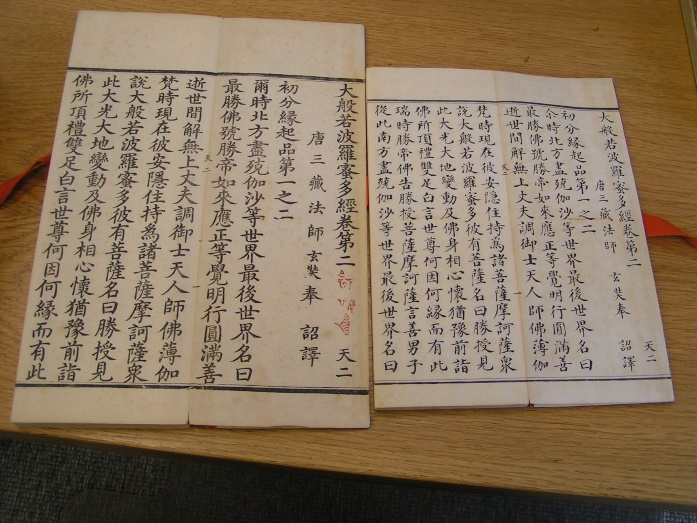 大般若波羅蜜多經卷第二 天二
唐三藏法師玄奘奉 詔譯
初分緣起品第一之二
爾時北方盡殑伽沙等世界最後世界名曰
最勝佛號勝帝如來應正等覺明行圓滿善
天二
逝世間解無上丈夫調御士天人師佛薄伽
梵時現在彼安隱住持為諸菩薩摩訶薩衆
說大般若波羅蜜多彼有菩薩名曰勝授見
此大光大地變動及佛身相心懷猶豫前詣
佛所頂禮雙足白言世尊何因何緣而有此
大般若波羅蜜多經卷第二 天二
唐三藏法師玄奘奉 詔譯
初分緣起品第一之二
尒時北方盡殑伽沙等世界最後世界名曰
最勝佛號勝帝如來應正等覺明行圓滿善
天二
逝世間解無上丈夫調御士天人師佛薄伽
梵時現在彼安隱住持為諸菩薩摩訶薩衆
說大般若波羅蜜多彼有菩薩名曰勝授見
此大光大地變動及佛身相心懷猶豫前詣
佛所頂禮雙足白言世尊何因何緣而有此
瑞時勝帝佛告勝授菩薩摩訶薩言善男子
從此南方盡殑伽沙等世界最後世界名曰